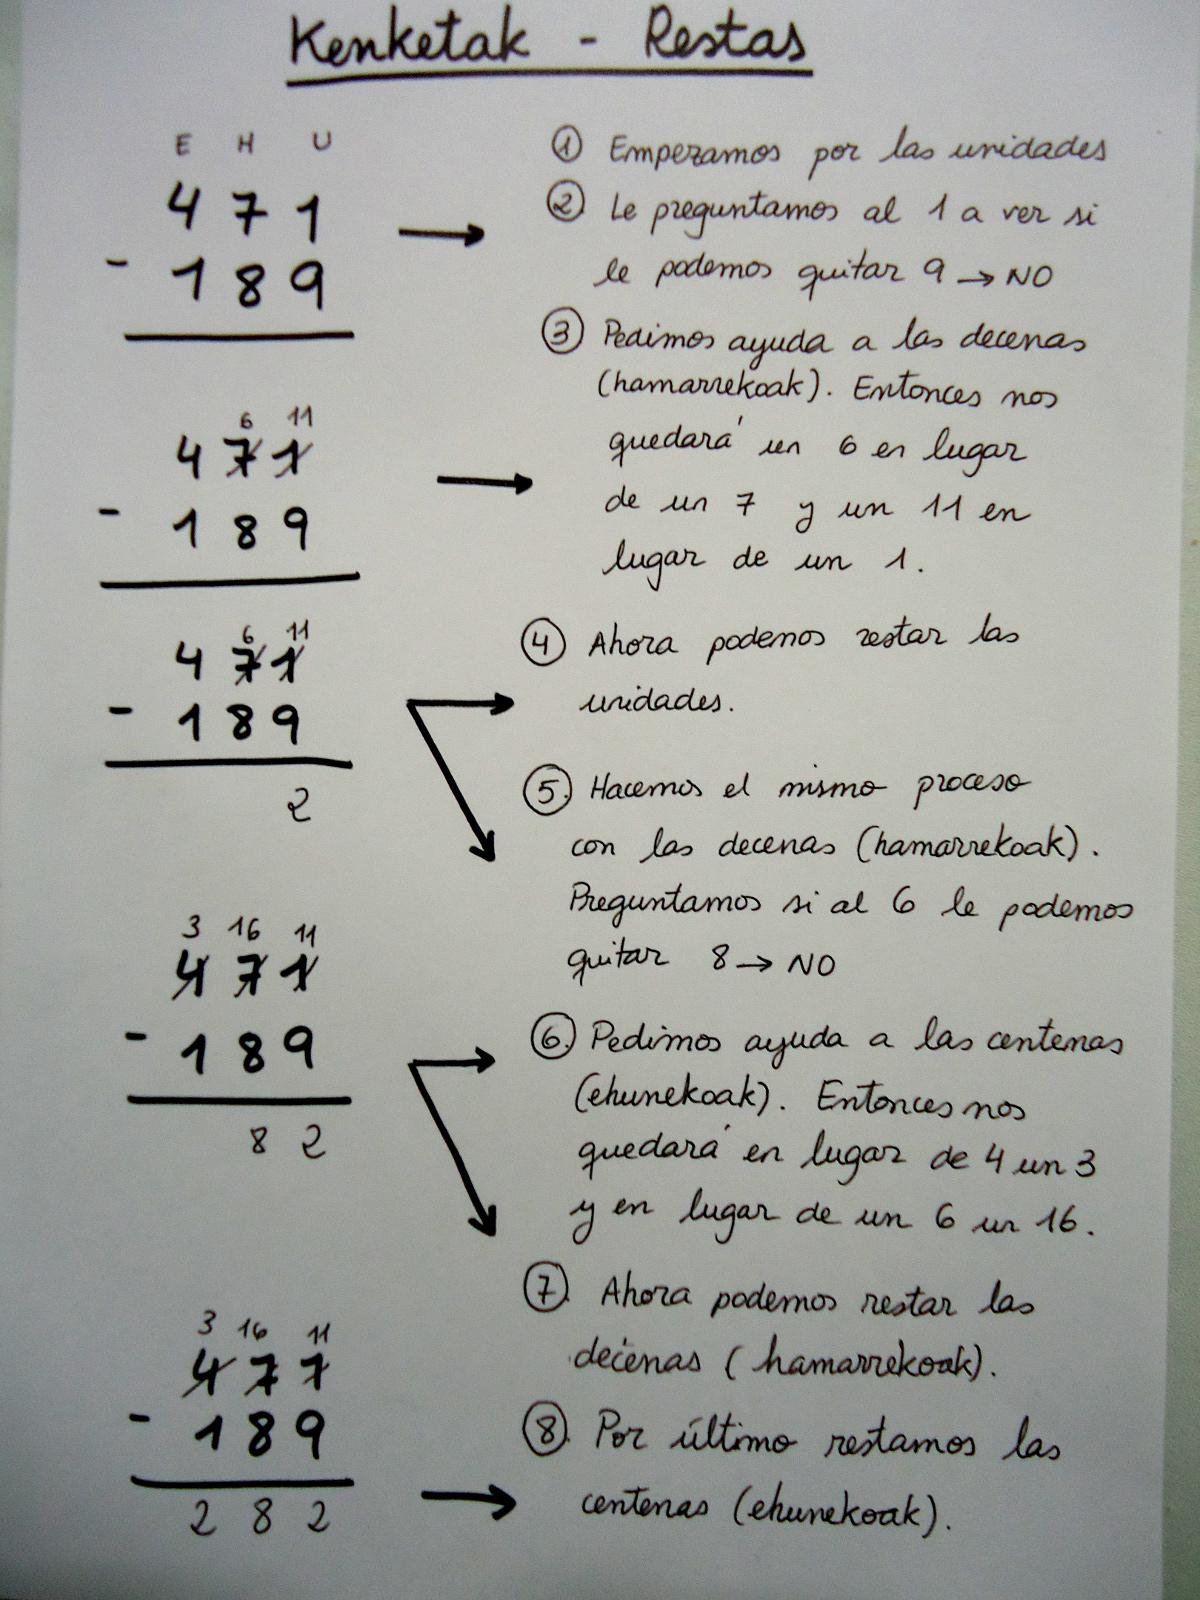 Kenketak - Restas
E H U
471
- 189
① Empezamos por las unidades
② Le preguntamos al 1 a ver si
le podemos quitar 9 → NO
③ Pedimos ayuda a las decenas
(hamarrekoak). Entonces nos
quedará un 6 en lugar
de un 7 y un 11 en
lugar de un 1.
6 11
471
- 189
6 11
471
- 189
2
④ Ahora podemos restar las
unidades.
⑤. Hacemos el mismo proceso
con las decenas (hamarrekoak).
Preguntamos si al 6 le podemos
quitar 8 → NO
3 16 11
471
- 189
82
⑥. Pedimos ayuda a las centenas
(ehunekoak). Entonces nos
quedará en lugar de 4 un 3
y en lugar de un 6 un 16.
⑦. Ahora podemos restar las
decenas (hamarrekoak).
3 16 11
477
- 189
282
⑧. Por último restamos las
centenas (ehunekoak).